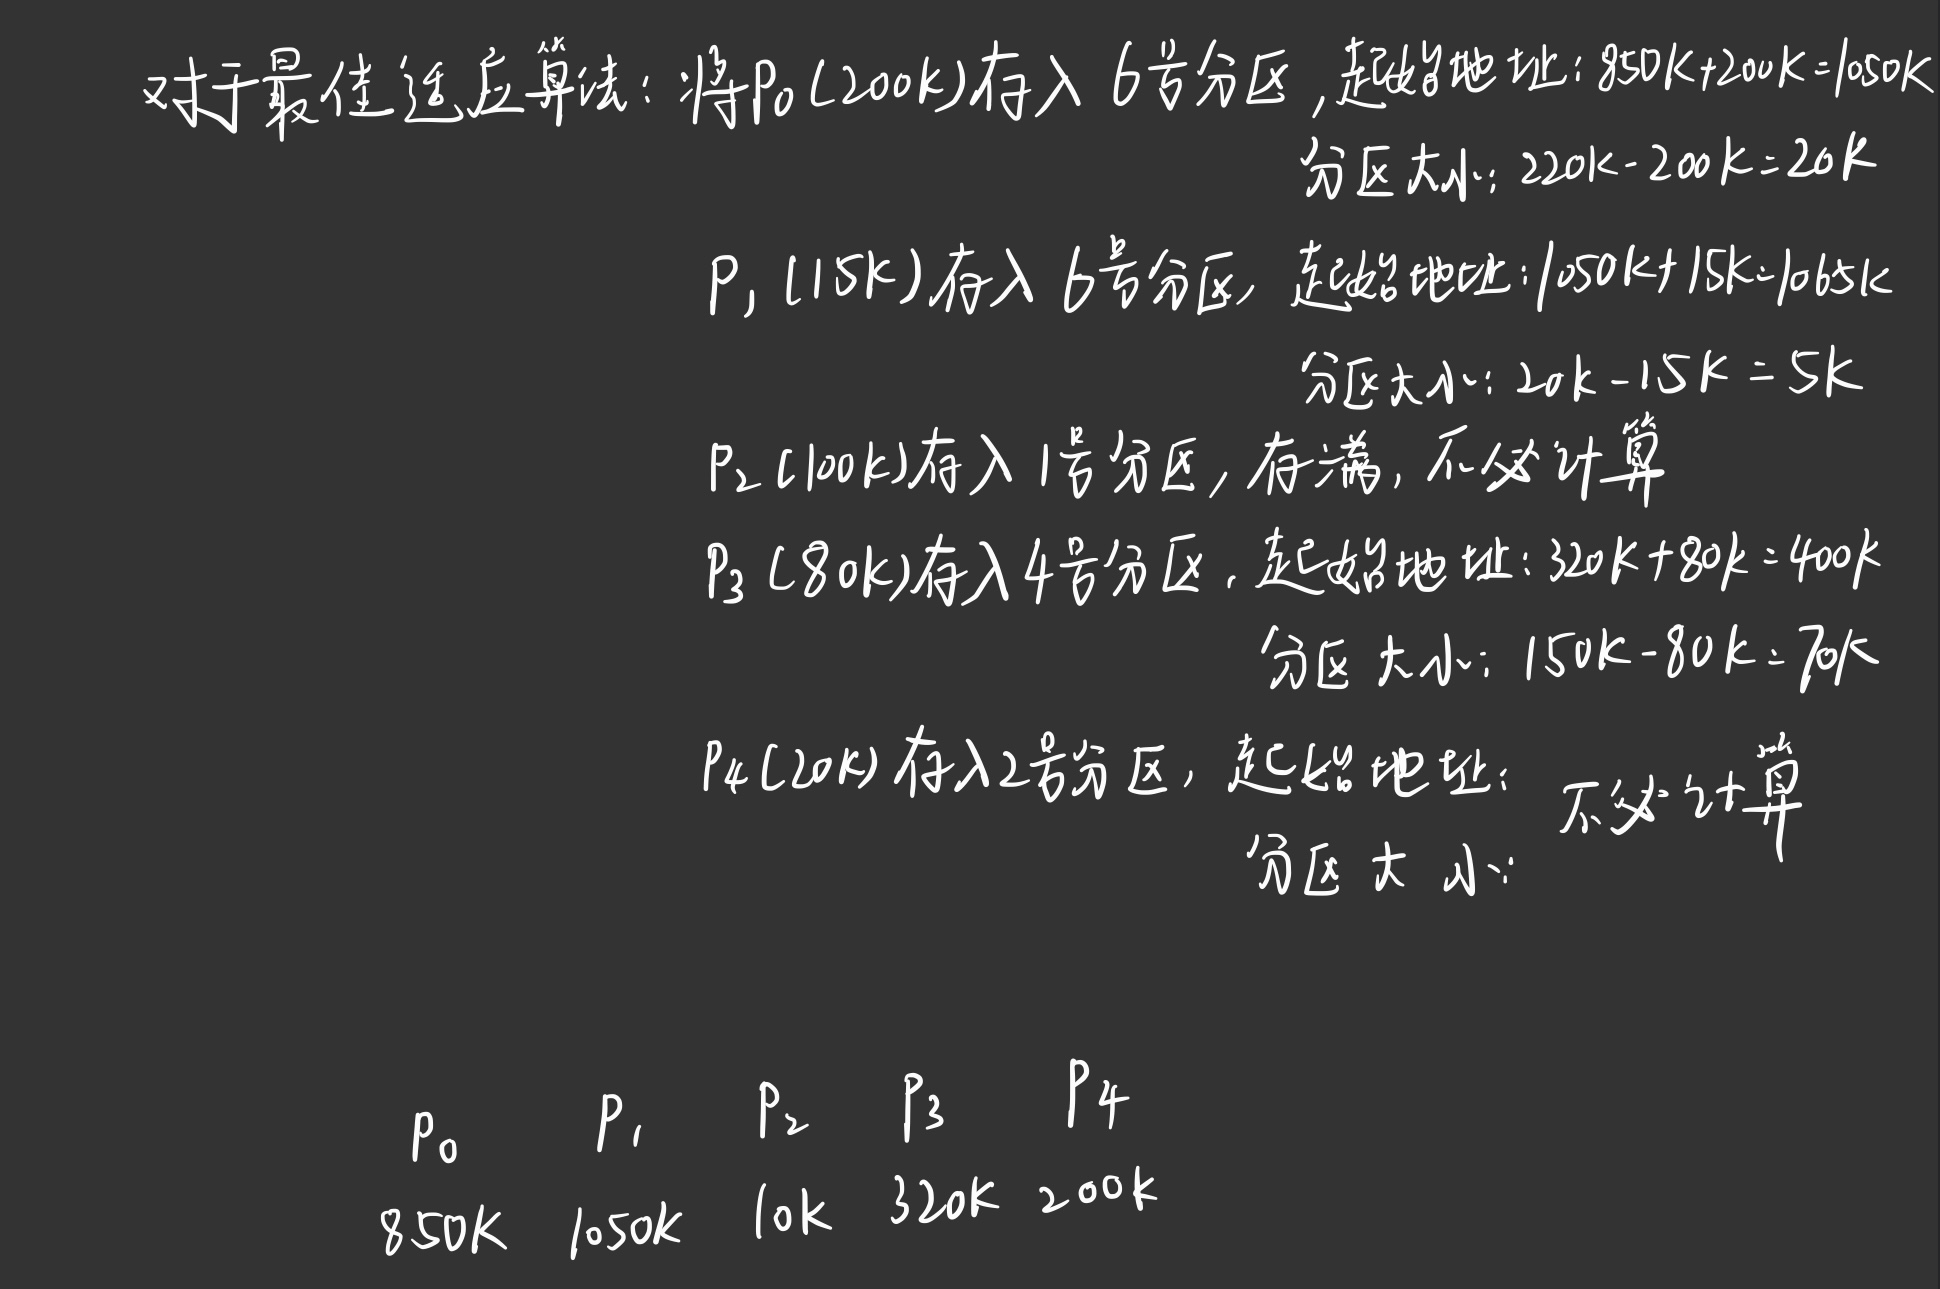 对于最佳适应算法：将P₀(200K)存入6号分区，起始地址：850K+200K=1050K
分区大小：220K-200K=20K
P₁(15K)存入6号分区，起始地址：1050K+15K=1065K
分区大小：20K-15K=5K
P₂(100K)存入1号分区，存满，不必计算
P₃(80K)存入4号分区，起始地址：320K+80K=400K
分区大小：150K-80K=70K
P₄(20K)存入2号分区，起始地址：不必计算
分区大小：
P₀ P₁ P₂ P₃ P₄
850K 1050K 10K 320K 200K